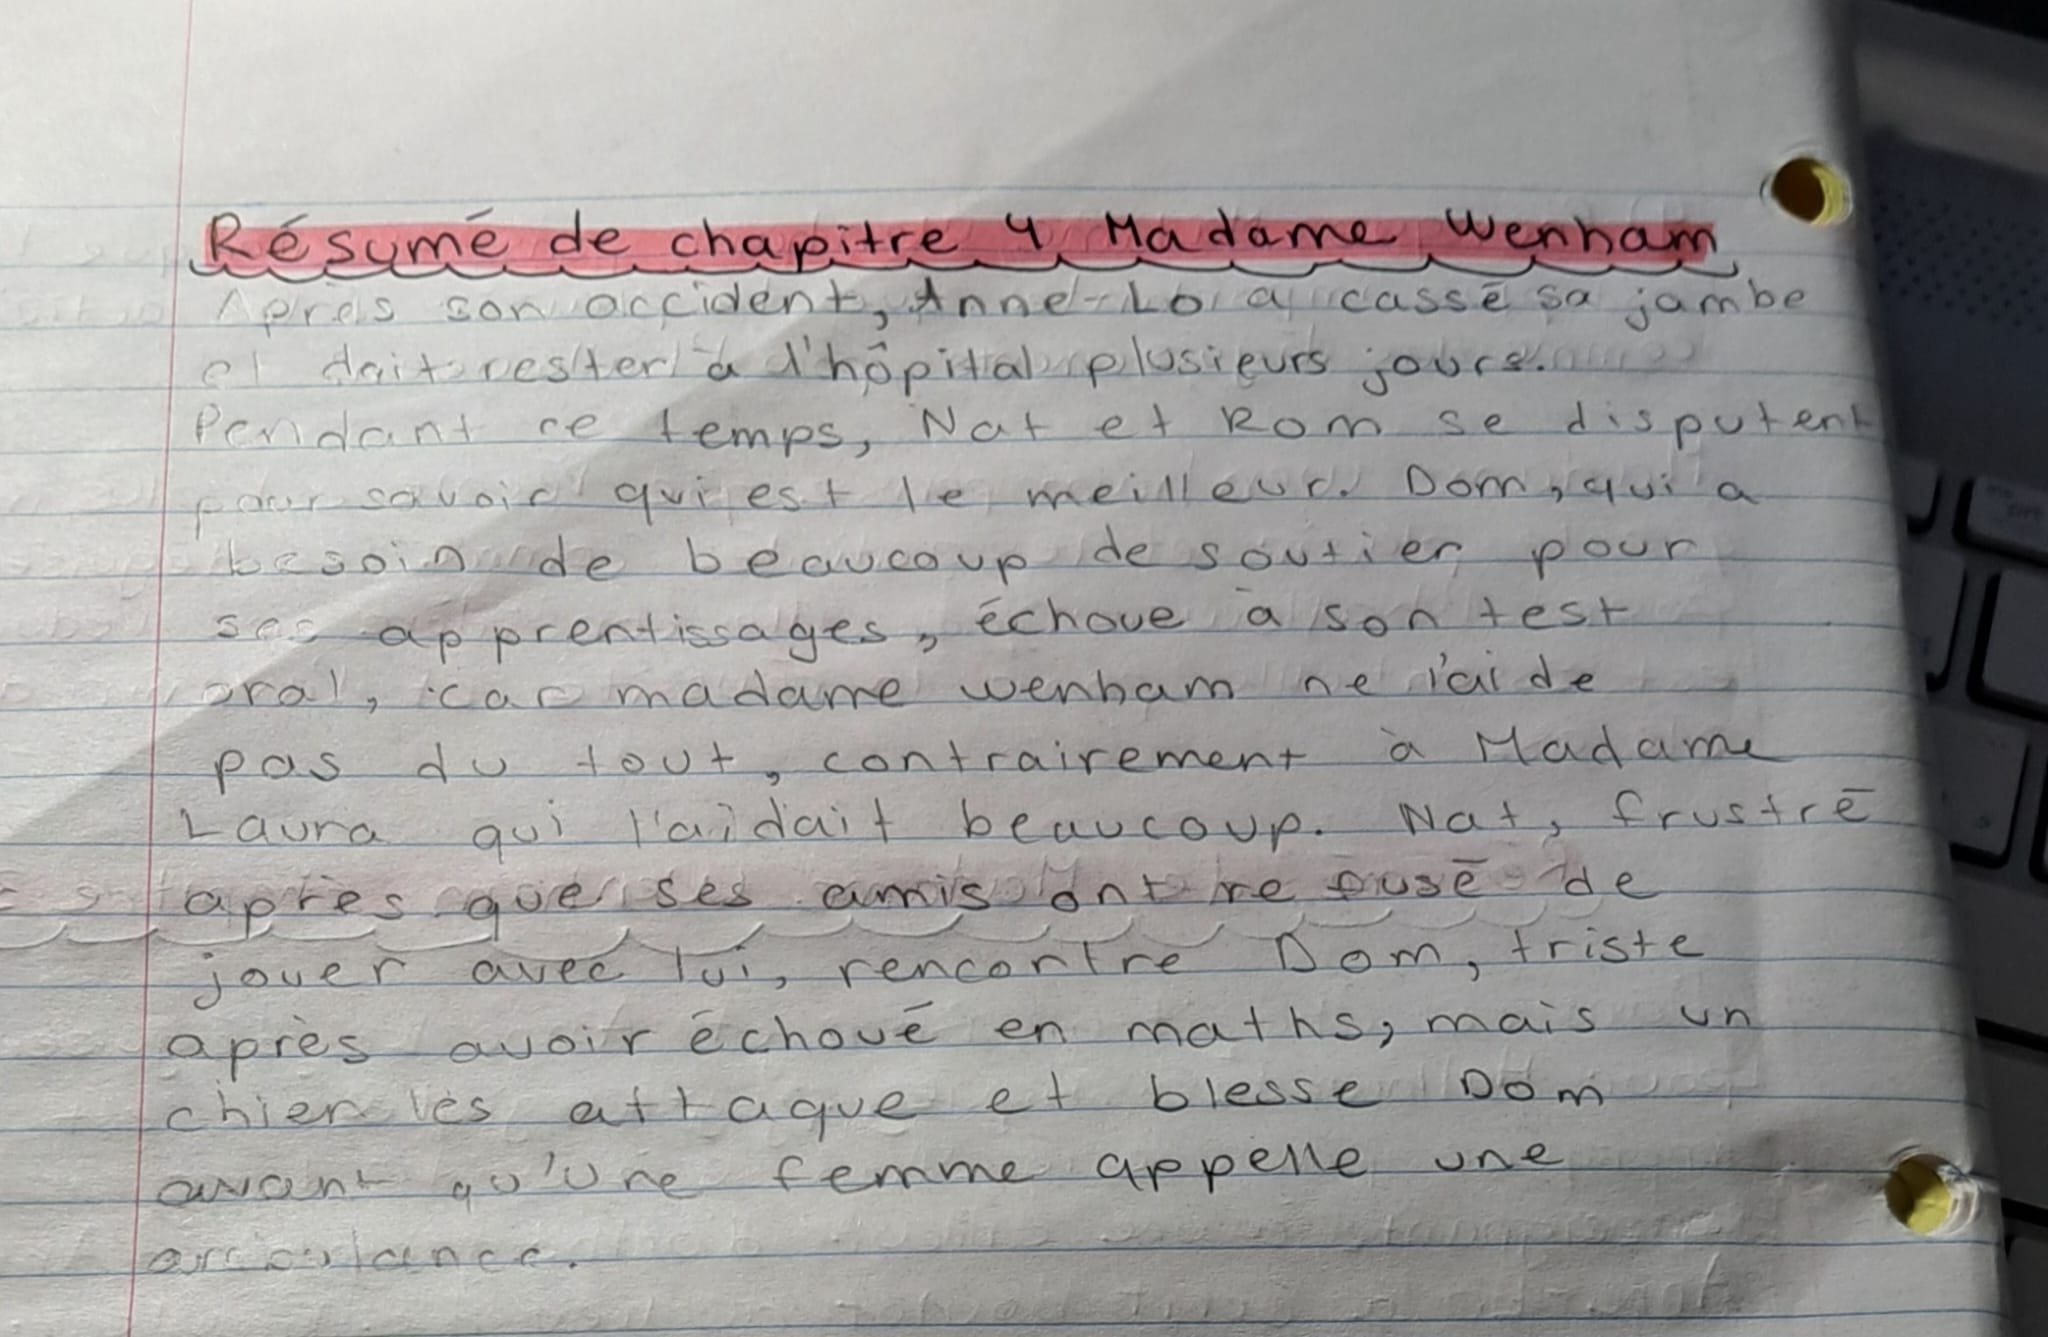 Résumé de chapitre 4 Madame Wenham
Après son accident, Anne-Lo a cassé sa jambe
et doit rester à l'hôpital plusieurs jours.
Pendant ce temps, Nat et Rom se disputent
pour savoir qui est le meilleur. Dom, qui a
besoin de beaucoup de soutien pour
ses apprentissages, échoue à son test
oral, car madame wenham ne l'aide
pas du tout, contrairement à Madame
Laura qui l'aidait beaucoup. Nat, frustré
après que ses amis ont refusé de
jouer avec lui, rencontre Dom, triste
après avoir échoué en maths, mais un
chien les attaque et blesse Dom
avant qu'une femme appelle une
ambulance.